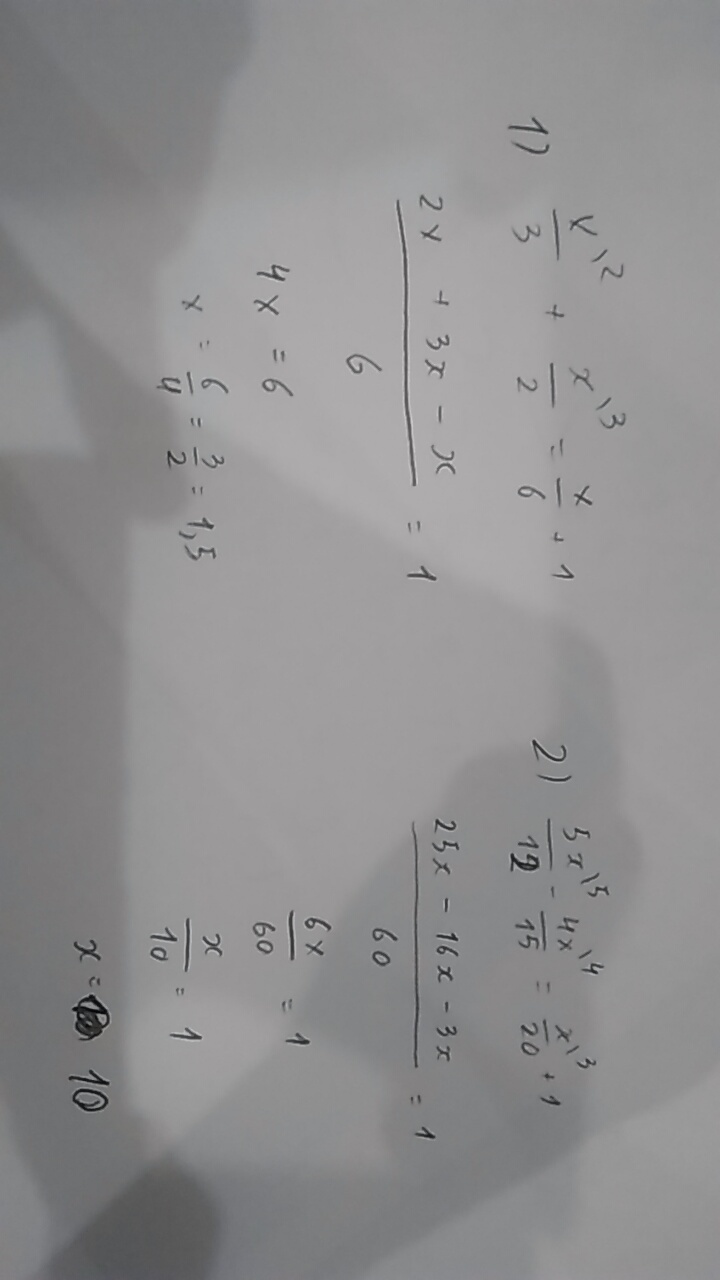 1) x\2/3 + x\3/2 = x/6 + 1
(2x + 3x - x)/6 = 1
4x = 6
x = 6/4 = 3/2 = 1,5
2) 5x\5/12 - 4x\4/15 = x\3/20 + 1
(25x - 16x - 3x)/60 = 1
6x/60 = 1
x/10 = 1
x = 10